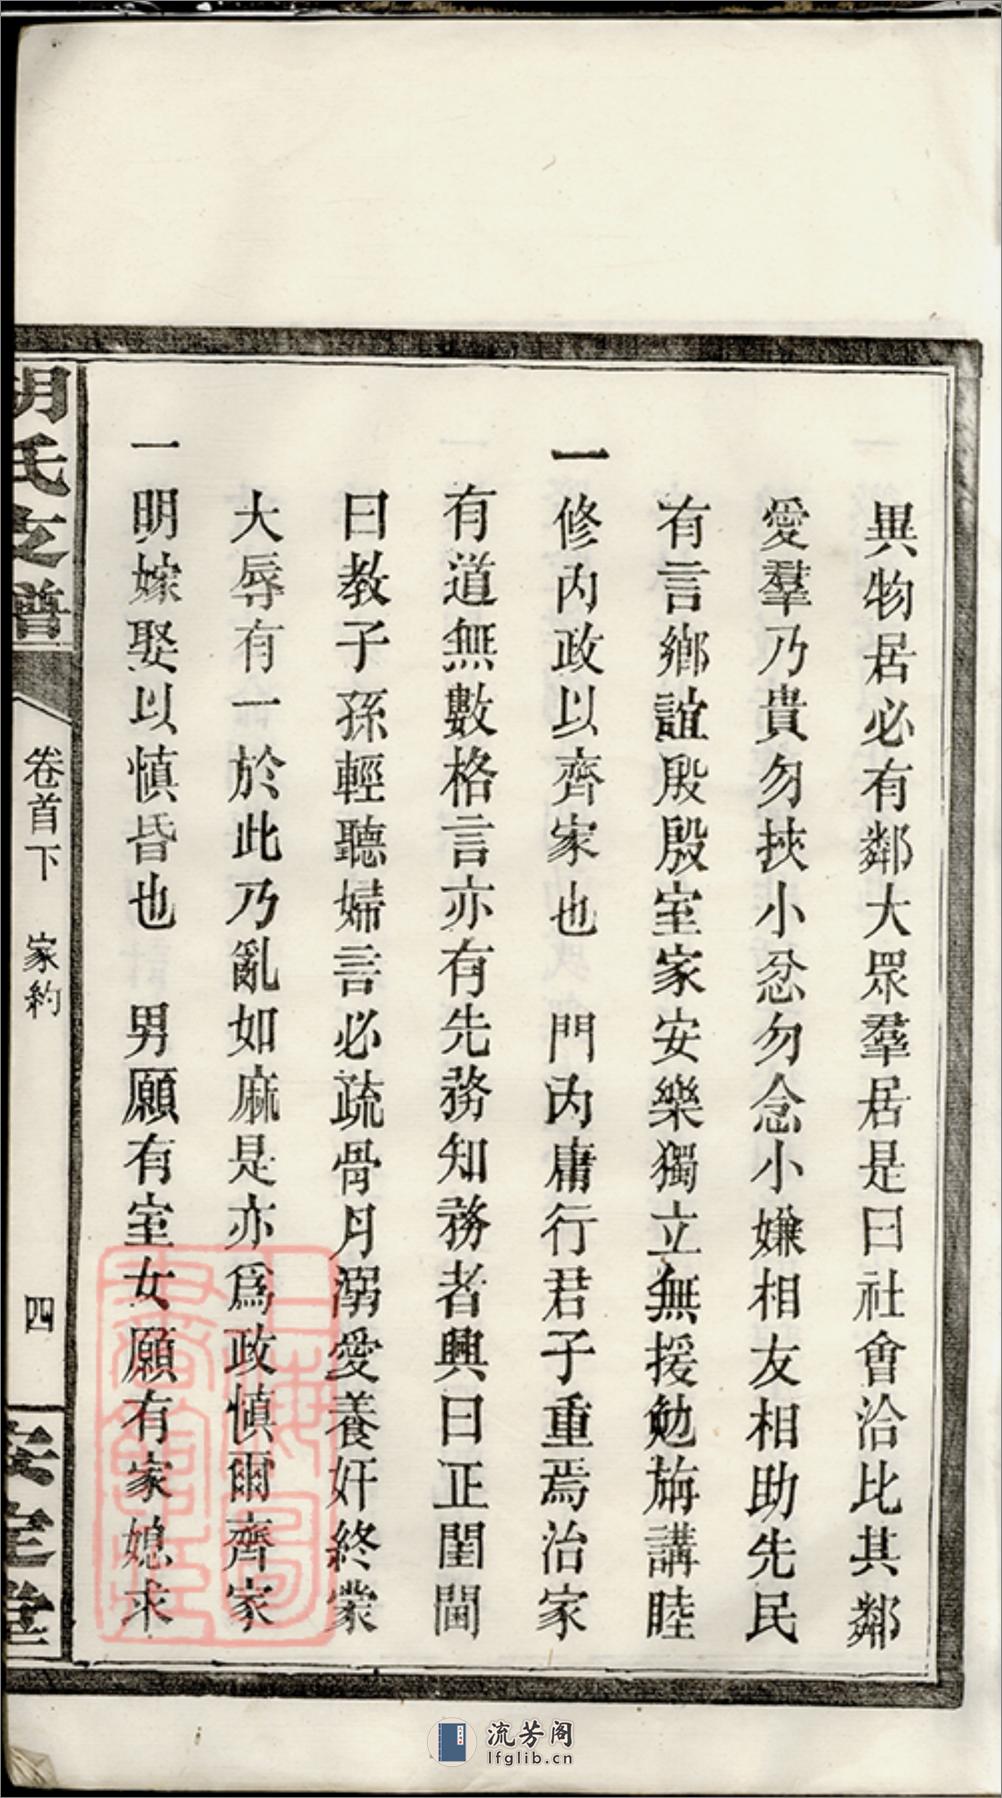 異物居必有鄰大眾羣居是曰社會洽比其鄰
愛羣乃貴勿挾小忿勿念小嫌相友相助先民
有言鄉誼殷殷室家安樂獨立無援勉旃講睦
一修內政以齊家也　門內庸行君子重焉治家
有道無數格言亦有先務知務者興曰正閨閫
曰教子孫輕聽婦言必疏骨月溺愛養奸終蒙
大辱有一於此乃亂如麻是亦爲政慎爾齊家
一明嫁娶以慎昏也　男願有室女願有家媳求
胡氏支譜
卷首下　家約
四
安定堂
上海圖書館藏
流芳阁
lfglib.cn